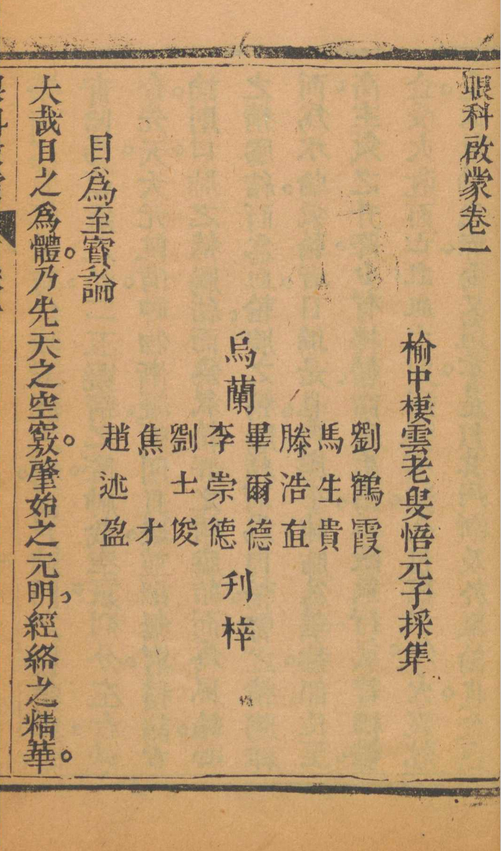 眼科啟蒙卷一
榆中棲雲老叟悟元子採集
劉鶴霞
馬生貴
滕浩㫖
烏蘭
畢爾德
李崇德
刋梓
劉士俊
焦才
趙述盈
目爲至寳論
大哉目之爲體。乃先天之空竅。肇始之元明。經絡之精華。